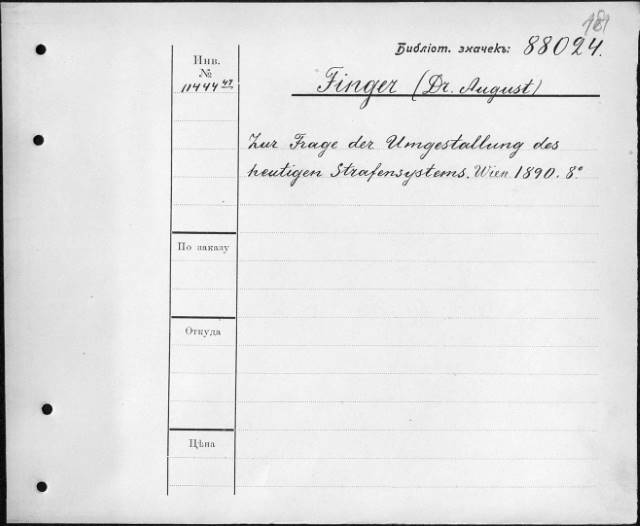 181
Библіот. значекъ: 88024.
Инв.
№
11444 49
Finger (Dr. August)
Zur Frage der Umgestaltung des
heutigen Strafensystems. Wien 1890. 8°
По заказу
Откуда
Цѣна